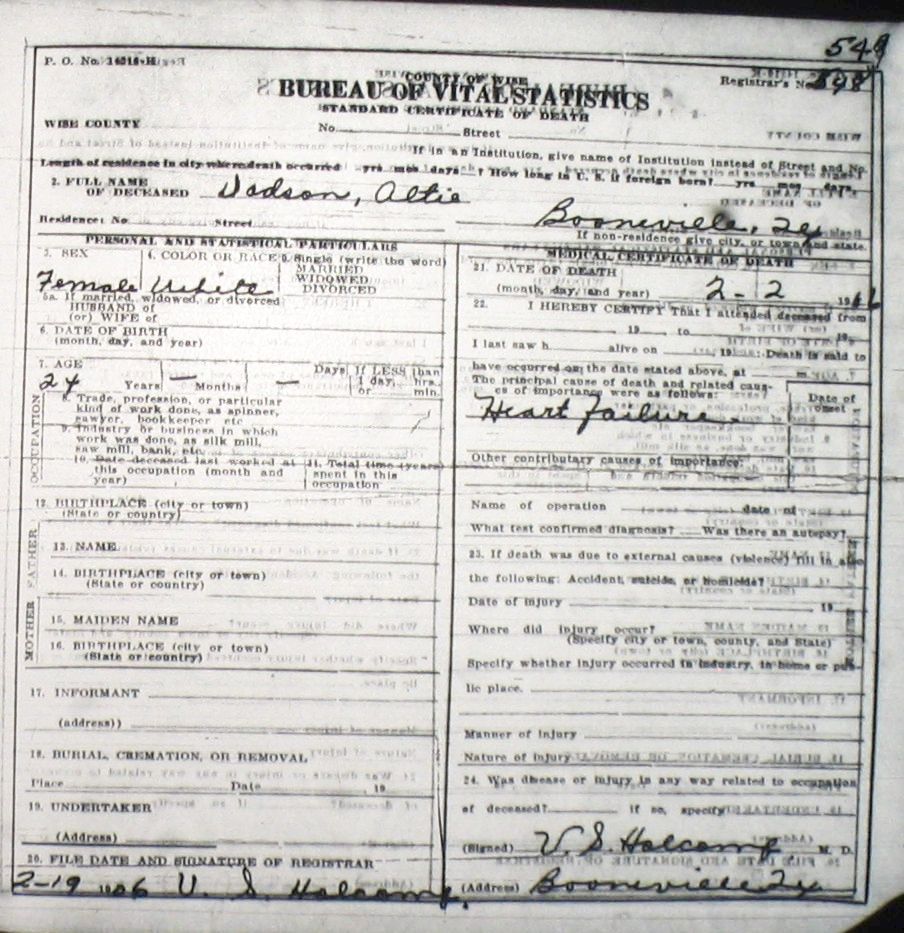 549
P. O. No. 14210-H
COUNTY OF WISE
BUREAU OF VITAL STATISTICS
Registrar's No. 548
STANDARD CERTIFICATE OF DEATH
WISE COUNTY
No. Street
If in an Institution, give name of Institution instead of Street and No.
Length of residence in city where death occurred yrs mos days ? How long in U. S. if foreign born? yrs mos days.
2. FULL NAME OF DECEASED Dodson, Altie
Residence: No Street Booneville, Tex
If non-residence give city, or town, and state.
PERSONAL AND STATISTICAL PARTICULARS
3. SEX 4. COLOR OR RACE 5. Single (write the word)
MARRIED
WIDOWED
DIVORCED
Female White
5a. If married, widowed, or divorced
HUSBAND of
(or) WIFE of
6. DATE OF BIRTH
(month, day, and year)
7. AGE
24 Years — Months — Days If LESS than 1 day, hrs. or min.
OCCUPATION
8. Trade, profession, or particular
kind of work done, as spinner,
sawyer, bookkeeper etc
9. Industry or business in which
work was done, as silk mill,
saw mill, bank, etc.
10. Date deceased last worked at
this occupation (month and
year)
11. Total time (years)
spent in this
occupation
12. BIRTHPLACE (city or town)
(State or country)
FATHER
13. NAME
14. BIRTHPLACE (city or town)
(State or country)
MOTHER
15. MAIDEN NAME
16. BIRTHPLACE (city or town)
(State or country)
17. INFORMANT
(address))
18. BURIAL, CREMATION, OR REMOVAL
Place Date 19
19. UNDERTAKER
(Address)
20. FILE DATE AND SIGNATURE OF REGISTRAR
2-19 1906 V. S. Holcomp.
MEDICAL CERTIFICATE OF DEATH
21. DATE OF DEATH
(month, day, and year) 2-2 19
22. I HEREBY CERTIFY That I attended deceased from
19 to 19
I last saw h alive on 19 Death is said to
have occurred on the date stated above, at m.
The principal cause of death and related caus-
es of importance were as follows:
Date of onset
Heart Failure
Other contributory causes of importance:
Name of operation date of
What test confirmed diagnosis? Was there an autopsy?
23. If death was due to external causes (violence) fill in also
the following: Accident, suicide, or homicide?
Date of injury 19
Where did injury occur?
(Specify city or town, county, and State)
Specify whether injury occurred in industry, in home or pub-
lic place.
Manner of injury
Nature of injury
24. Was disease or injury in any way related to occupation
of deceased? if so, specify
(Signed) V. S. Holcomp, M. D.
(Address) Booneville Tex